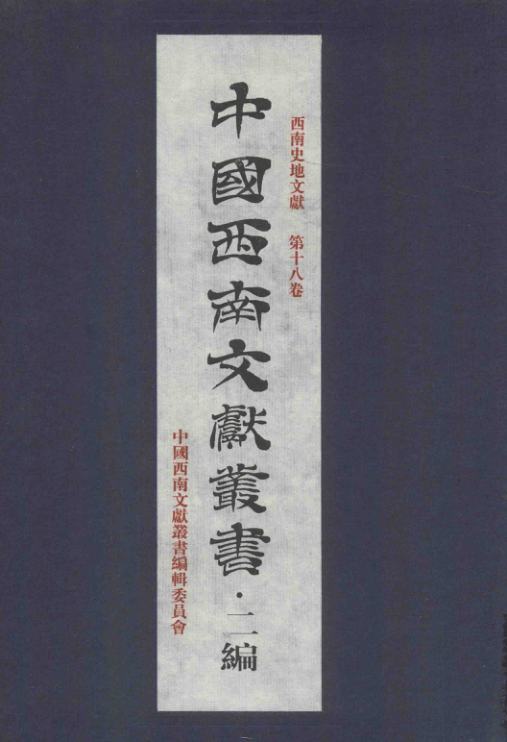 西南史地文獻 第十八卷
中國西南文獻叢書·二編
中國西南文獻叢書編輯委員會